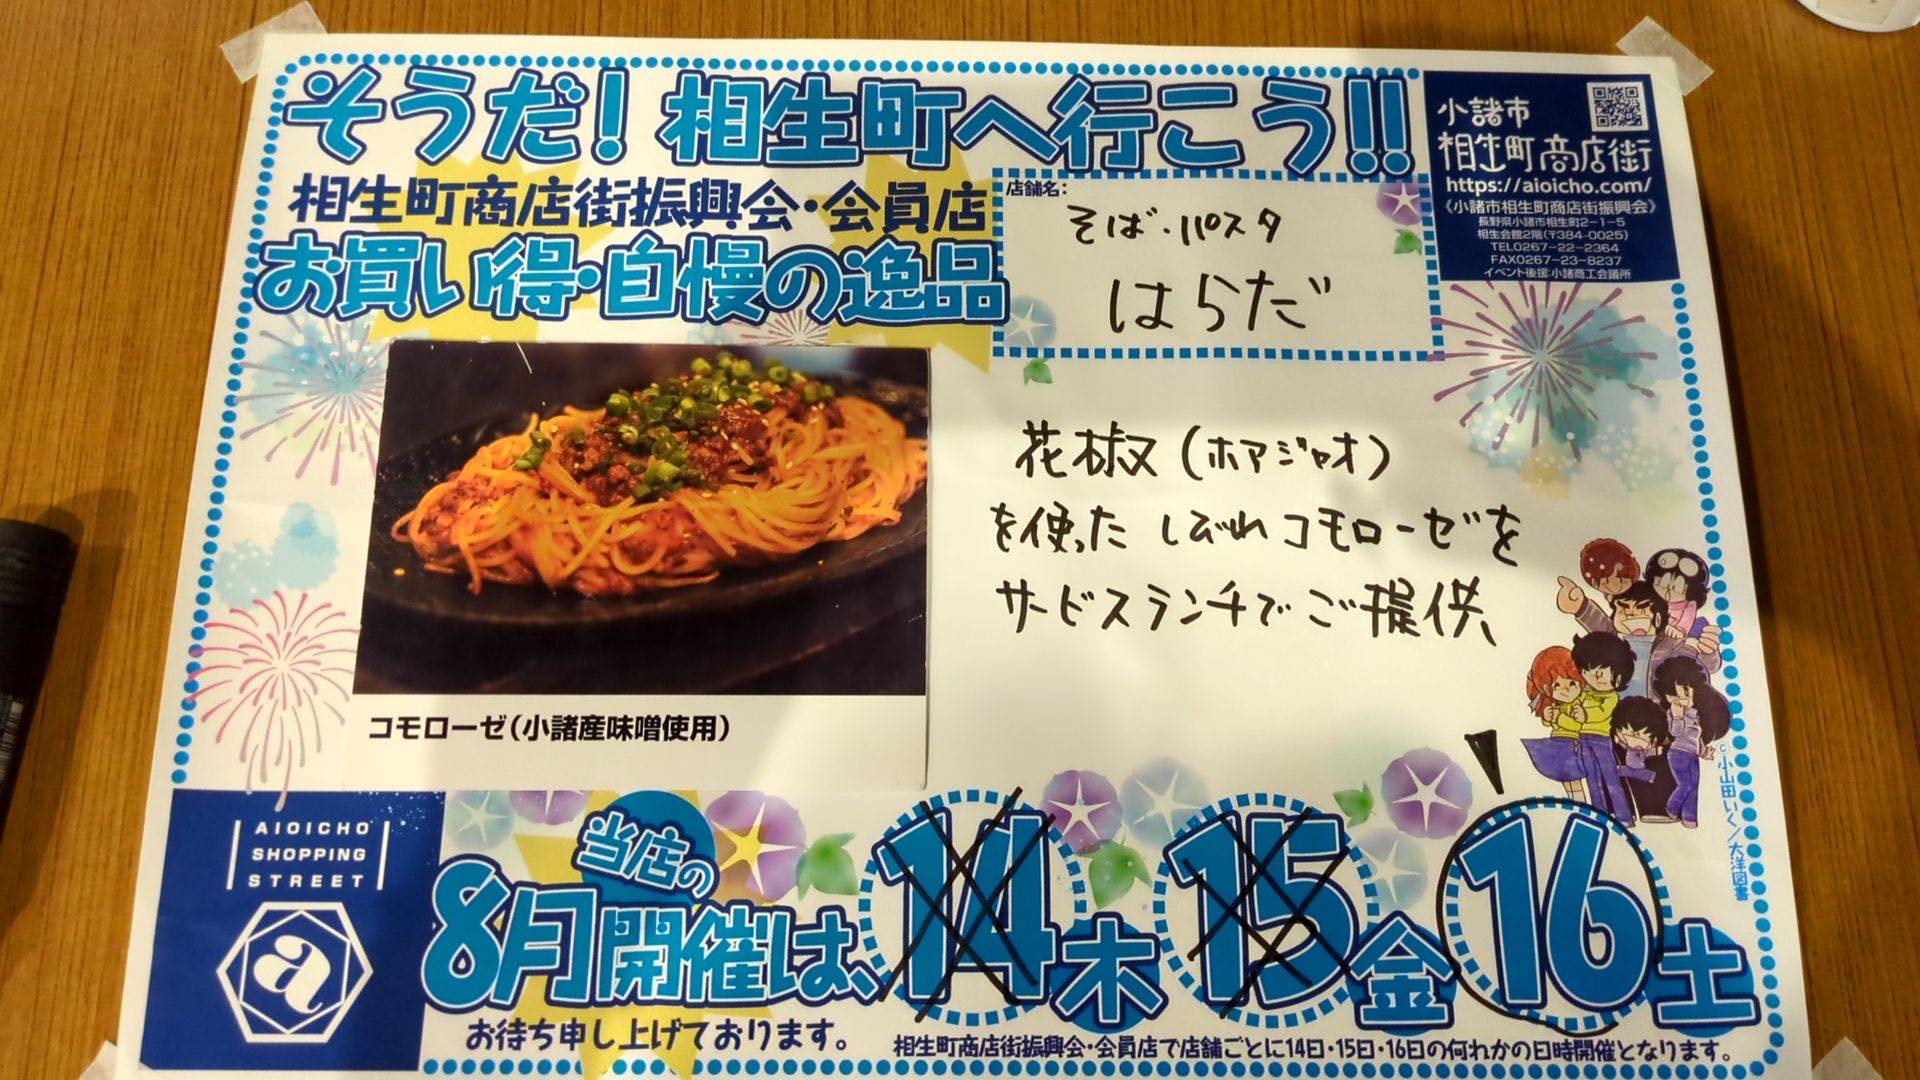 そうだ！相生町へ行こう!!
相生町商店街振興会・会員店
お買い得・自慢の逸品
店舗名：
そば・パスタ
はらだ
小諸市
相生町商店街
https://aioicho.com/
《小諸市相生町商店街振興会》
長野県小諸市相生町2-1-5
相生会館2階(〒384-0025)
TEL0267-22-2364
FAX0267-23-8237
イベント後援:小諸商工会議所
花椒(ホアジャオ)
を使った しびれコモローゼを
サービスランチでご提供、
コモローゼ(小諸産味噌使用)
©小山田いく/大洋図書
AIOICHO
SHOPPING
STREET
a
当店の
8月開催は、14木 15金 16土
お待ち申し上げております。
相生町商店街振興会・会員店で店舗ごとに14日・15日・16日の何れかの日時開催となります。